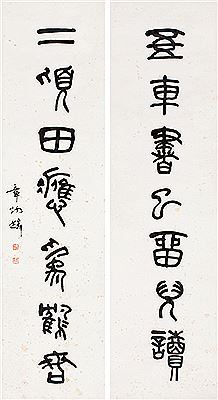 五車書已留兒讀
二頃田應為鶴謀
章炳麟